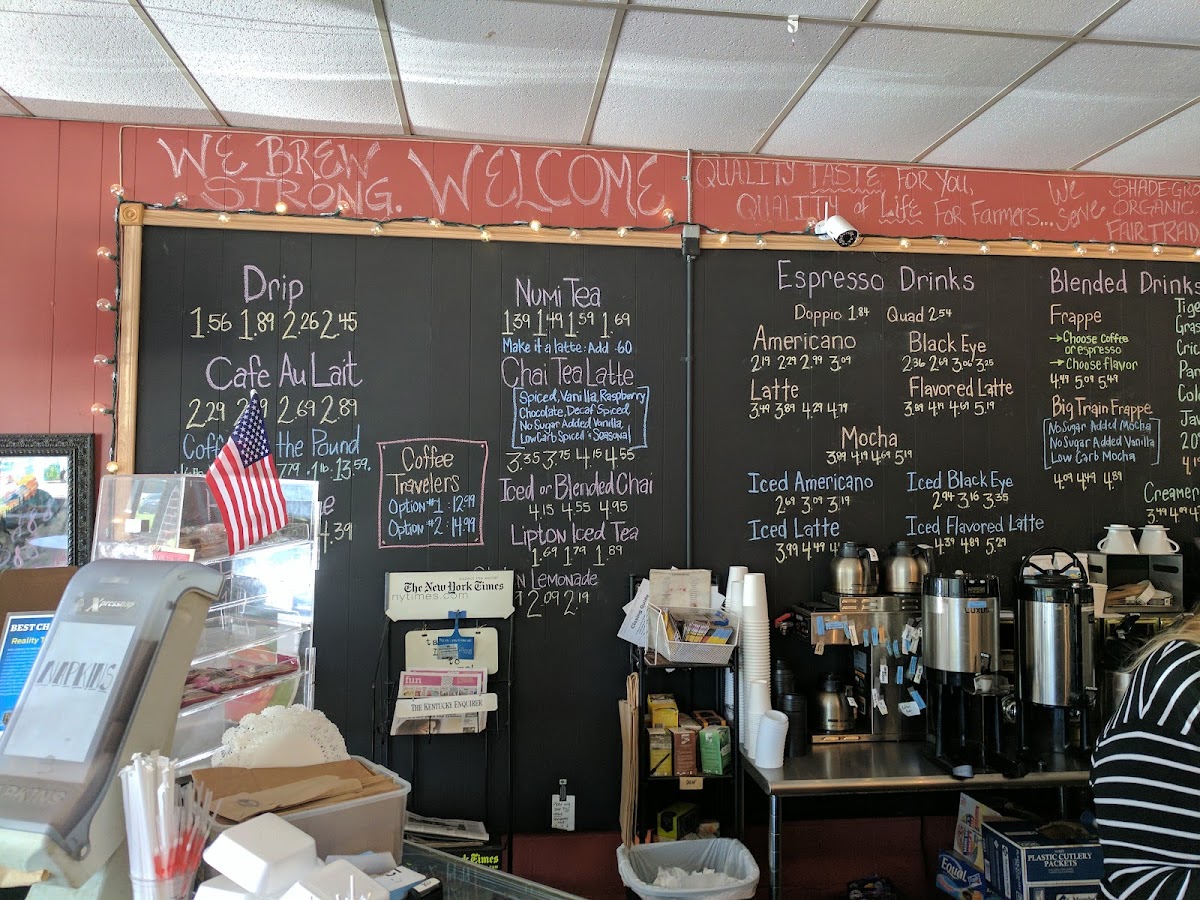 WE BREW
STRONG.
WELCOME
QUALITY TASTE FOR YOU,
QUALITY of Life For Farmers...
We
serve
SHADE-GRO
ORGANIC
FAIR TRAD
Drip
1.56 1.89 2.26 2.45
Cafe Au Lait
2.29 2.69 2.89
the Pound
1 lb. 13.59
4.39
Coffee
Travelers
Option #1: 12.99
Option #2: 14.99
Numi Tea
1.39 1.49 1.59 1.69
Make it a latte: Add .60
Chai Tea Latte
Spiced, Vanilla, Raspberry
Chocolate, Decaf Spiced,
No Sugar Added Vanilla,
Low Carb Spiced & Seasonal
3.35 3.75 4.15 4.55
Iced or Blended Chai
4.15 4.55 4.95
Lipton Iced Tea
1.69 1.79 1.89
Lemonade
2.09 2.19
Espresso Drinks
Doppio 1.84 Quad 2.54
Americano
2.19 2.29 2.99 3.09
Black Eye
2.36 2.69 3.06 3.25
Latte
3.49 3.89 4.29 4.79
Flavored Latte
3.89 4.19 4.69 5.19
Mocha
3.89 4.19 4.69 5.19
Iced Americano
2.69 3.09 3.19
Iced Black Eye
2.94 3.16 3.35
Iced Latte
3.99 4.49
Iced Flavored Latte
4.39 4.89 5.29
Blended Drinks
Frappe
→Choose Coffee
or espresso
→Choose flavor
4.49 5.09 5.49
Big Train Frappe
No Sugar Added Mocha
No Sugar Added Vanilla
Low Carb Mocha
4.09 4.49 4.89
Creamer
3.49 4.09
Tige
Gras
Cric
Pan
Col
Jav
The New York Times
nytimes.com
fun
THE KENTUCKY ENQUIRER
Times
Xpressnap
NAPKINS
NAPKINS
BEST
Reality
LUXUS
PLASTIC CUTLERY
PACKETS
Equal